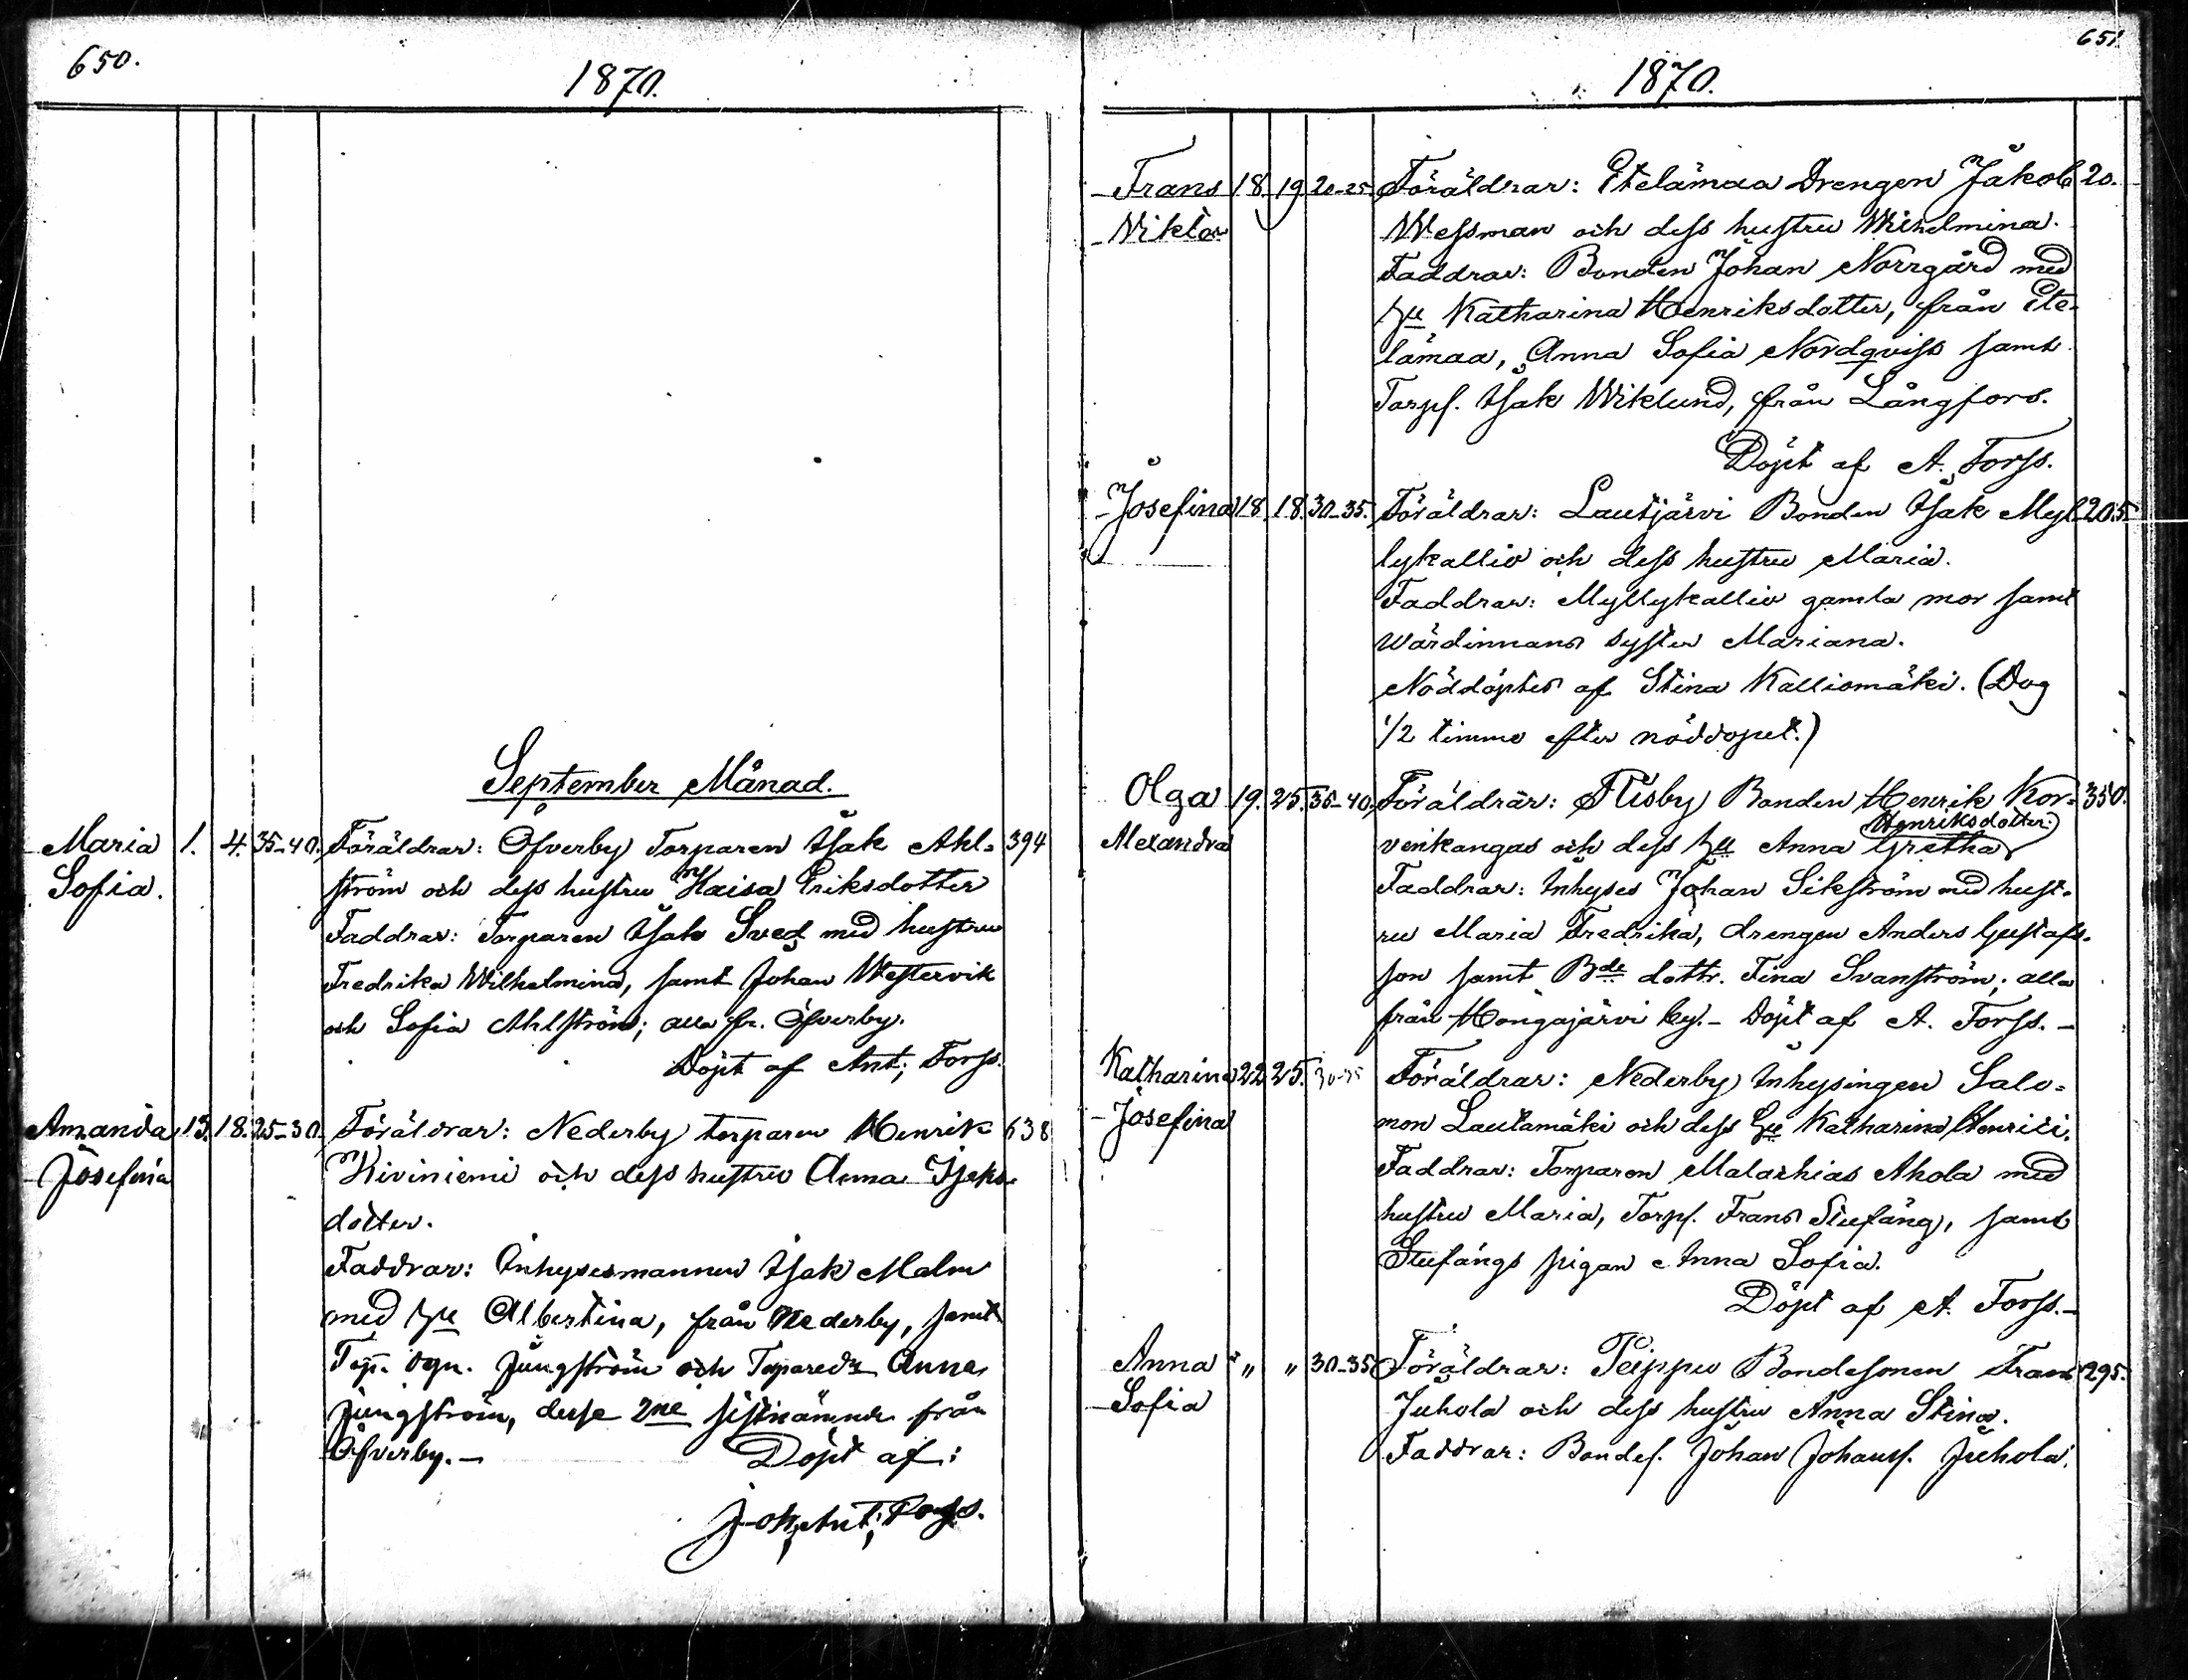 650.
1870.
September Månad.
Maria 1. 4. 35-40. Föräldrar: Öfverby Torparen Isak Ahl= 394
Sofia. ström och dess hustru Kaisa Eriksdotter
Faddrar: Torparen Isak Sved med hustru
Fredrika Wilhelmina, samt Johan Westervik
och Sofia Ahlström; alla fr. Öfverby.
Döpt af Ant; Forss.
Amanda 13. 18. 25-30. Föräldrar: Nederby torparen Henrik 638
Josefina Kiviniemi och dess hustru Anna Isaks-
dotter.
Faddrar: Inhysesmannen Isak Malm
med hu Albertina, från Nederby, samt
Jungström och Anna
Jungström, desse 2ne sistnämnde från
Öfverby.- Döpt af:
Joh, Ant; Forss.
651.
1870.
Frans 18. 19. 20-25. Föräldrar: Etelämaa Drengen Jakob 20.
Viktor Wessman och dess hustru Wilhelmina.
Faddrar: Bonden Johan Norrgård med
hu Katharina Henriksdotter, från Ete-
lämaa, Anna Sofia Nordqvist samt
Torps. Isak Wiklund, från Långfors.
Döpt af A. Forss.
Josefina 18. 18. 30-35. Föräldrar: Lautjärvi Bonden Isak Myl- 205
lykallio och dess hustru Maria.
Faddrar: Myllykallio gamla mor samt
Wärdinnans syster Mariana.
Nöddöptes af Stina Kalliomäki. (Dog
1/2 timme efter nöddopet.)
Olga 19. 25. 35-40. Föräldrar: Flisby Bonden Henrik Kor- 350.
Henriksdotter
Alexandra venkangas och dess hu Anna Gretha
Faddrar: Inhyses Johan Sikström med hust-
ru Maria Fredrika, drengen Anders Gustafs-
son samt Bde dottr. Fina Svanström; alla
från Hongajärvi by.- Döpt af A. Forss.-
Katharina 22. 25. 30-35 Föräldrar: Nederby Inhysingen Salo=
Josefina mon Lautamäki och dess hu Katharina Henrici.
Faddrar: Torparen Malachias Ahola med
hustru Maria, Torps. Frans Stufäng, samt
Stufängs pigan Anna Sofia.
Döpt af A. Forss.-
Anna " " 30-35 Föräldrar: Peippu Bondesonen Frans 295.
Sofia Juhola och dess hustru Anna Stina.
Faddrar: Bondes. Johan Johanss. Juhola.